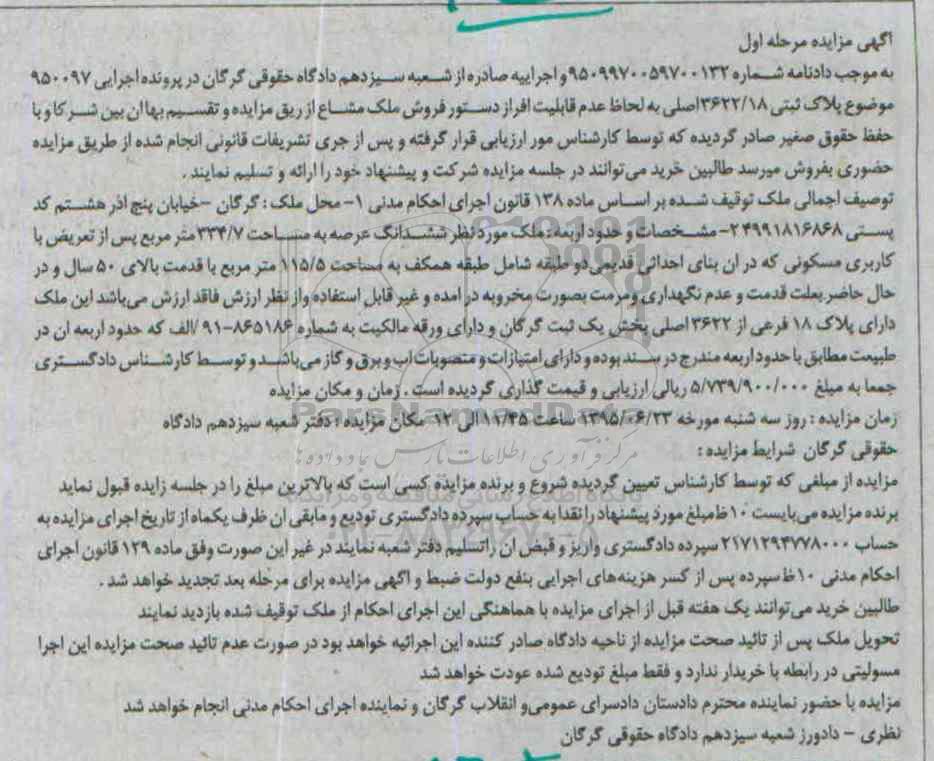 آگهی مزایده مرحله اول
به موجب دادنامه شماره ۹۵۰۹۹۷۰۰۵۹۷۰۰۱۳۲ و اجراییه صادره از شعبه سیزدهم دادگاه حقوقی گرگان در پرونده اجرایی ۹۵۰۰۹۷
موضوع پلاک ثبتی ۳۶۲۲/۱۸ اصلی به لحاظ عدم قابلیت افراز دستور فروش ملک مشاع از ریق مزایده و تقسیم بها ان بین شرکا و با
حفظ حقوق صغیر صادر گردیده که توسط کارشناس مور ارزیابی قرار گرفته و پس از جری تشریفات قانونی انجام شده از طریق مزایده
حضوری بفروش میرسد طالبین خرید می‌توانند در جلسه مزایده شرکت و پیشنهاد خود را ارائه و تسلیم نمایند .
توصیف اجمالی ملک توقیف شده بر اساس ماده ۱۳۸ قانون اجرای احکام مدنی ۱- محل ملک : گرگان -خیابان پنج اذر هشتم کد
پستی ۴۹۹۱۸۱۶۸۶۸ ۲- مشخصات و حدود اربعه : ملک مورد نظر ششدانگ عرصه به مساحت ۳۳۴/۷ متر مربع پس از تعریض با
کاربری مسکونی که در ان بنای احداثی قدیمی دو طبقه شامل طبقه همکف به مساحت ۱۱۵/۵ متر مربع با قدمت بالای ۵۰ سال و در
حال حاضر بعلت قدمت و عدم نگهداری و مرمت بصورت مخروبه در امده و غیر قابل استفاده واز نظر ارزش فاقد ارزش می‌باشد این ملک
دارای پلاک ۱۸ فرعی از ۳۶۲۲ اصلی پخش یک ثبت گرگان و دارای ورقه مالکیت به شماره ۸۶۵۱۸۶-۹۱ /الف که حدود اربعه ان در
طبیعت مطابق با حدود اربعه مندرج در سند بوده و دارای امتیازات و منصوبات اب و برق و گاز می‌باشد و توسط کارشناس دادگستری
جمعا به مبلغ ۵/۷۳۹/۹۰۰/۰۰۰ ریالی ارزیابی و قیمت گذاری گردیده است . زمان و مکان مزایده
زمان مزایده : روز سه شنبه مورخه ۱۳۹۵/۰۶/۲۳ ساعت ۱۱/۴۵ الی ۱۲ مکان مزایده : دفتر شعبه سیزدهم دادگاه
حقوقی گرگان شرایط مزایده :
مزایده از مبلغی که توسط کارشناس تعیین گردیده شروع و برنده مزایده کسی است که بالاترین مبلغ را در جلسه زایده قبول نماید
برنده مزایده می‌بایست ۱۰ ظ مبلغ مورد پیشنهاد را نقدا به حساب سپرده دادگستری تودیع و مابقی ان ظرف یکماه از تاریخ اجرای مزایده به
حساب ۲۱۷۱۲۹۴۷۷۸۰۰۰ سپرده دادگستری واریز و قبض ان راتسلیم دفتر شعبه نمایند در غیر این صورت وفق ماده ۱۲۹ قانون اجرای
احکام مدنی ۱۰ ظ سپرده پس از کسر هزینه‌های اجرایی بنفع دولت ضبط و اگهی مزایده برای مرحله بعد تجدید خواهد شد .
طالبین خرید می‌توانند یک هفته قبل از اجرای مزایده با هماهنگی این اجرای احکام از ملک توقیف شده بازدید نمایند
تحویل ملک پس از تائید صحت مزایده از ناحیه دادگاه صادر کننده این اجرائیه خواهد بود در صورت عدم تائید صحت مزایده این اجرا
مسولیتی در رابطه با خریدار ندارد و فقط مبلغ تودیع شده عودت خواهد شد
مزایده با حضور نماینده محترم دادستان دادسرای عمومی‌و انقلاب گرگان و نماینده اجرای احکام مدنی انجام خواهد شد
نظری - دادورز شعبه سیزدهم دادگاه حقوقی گرگان